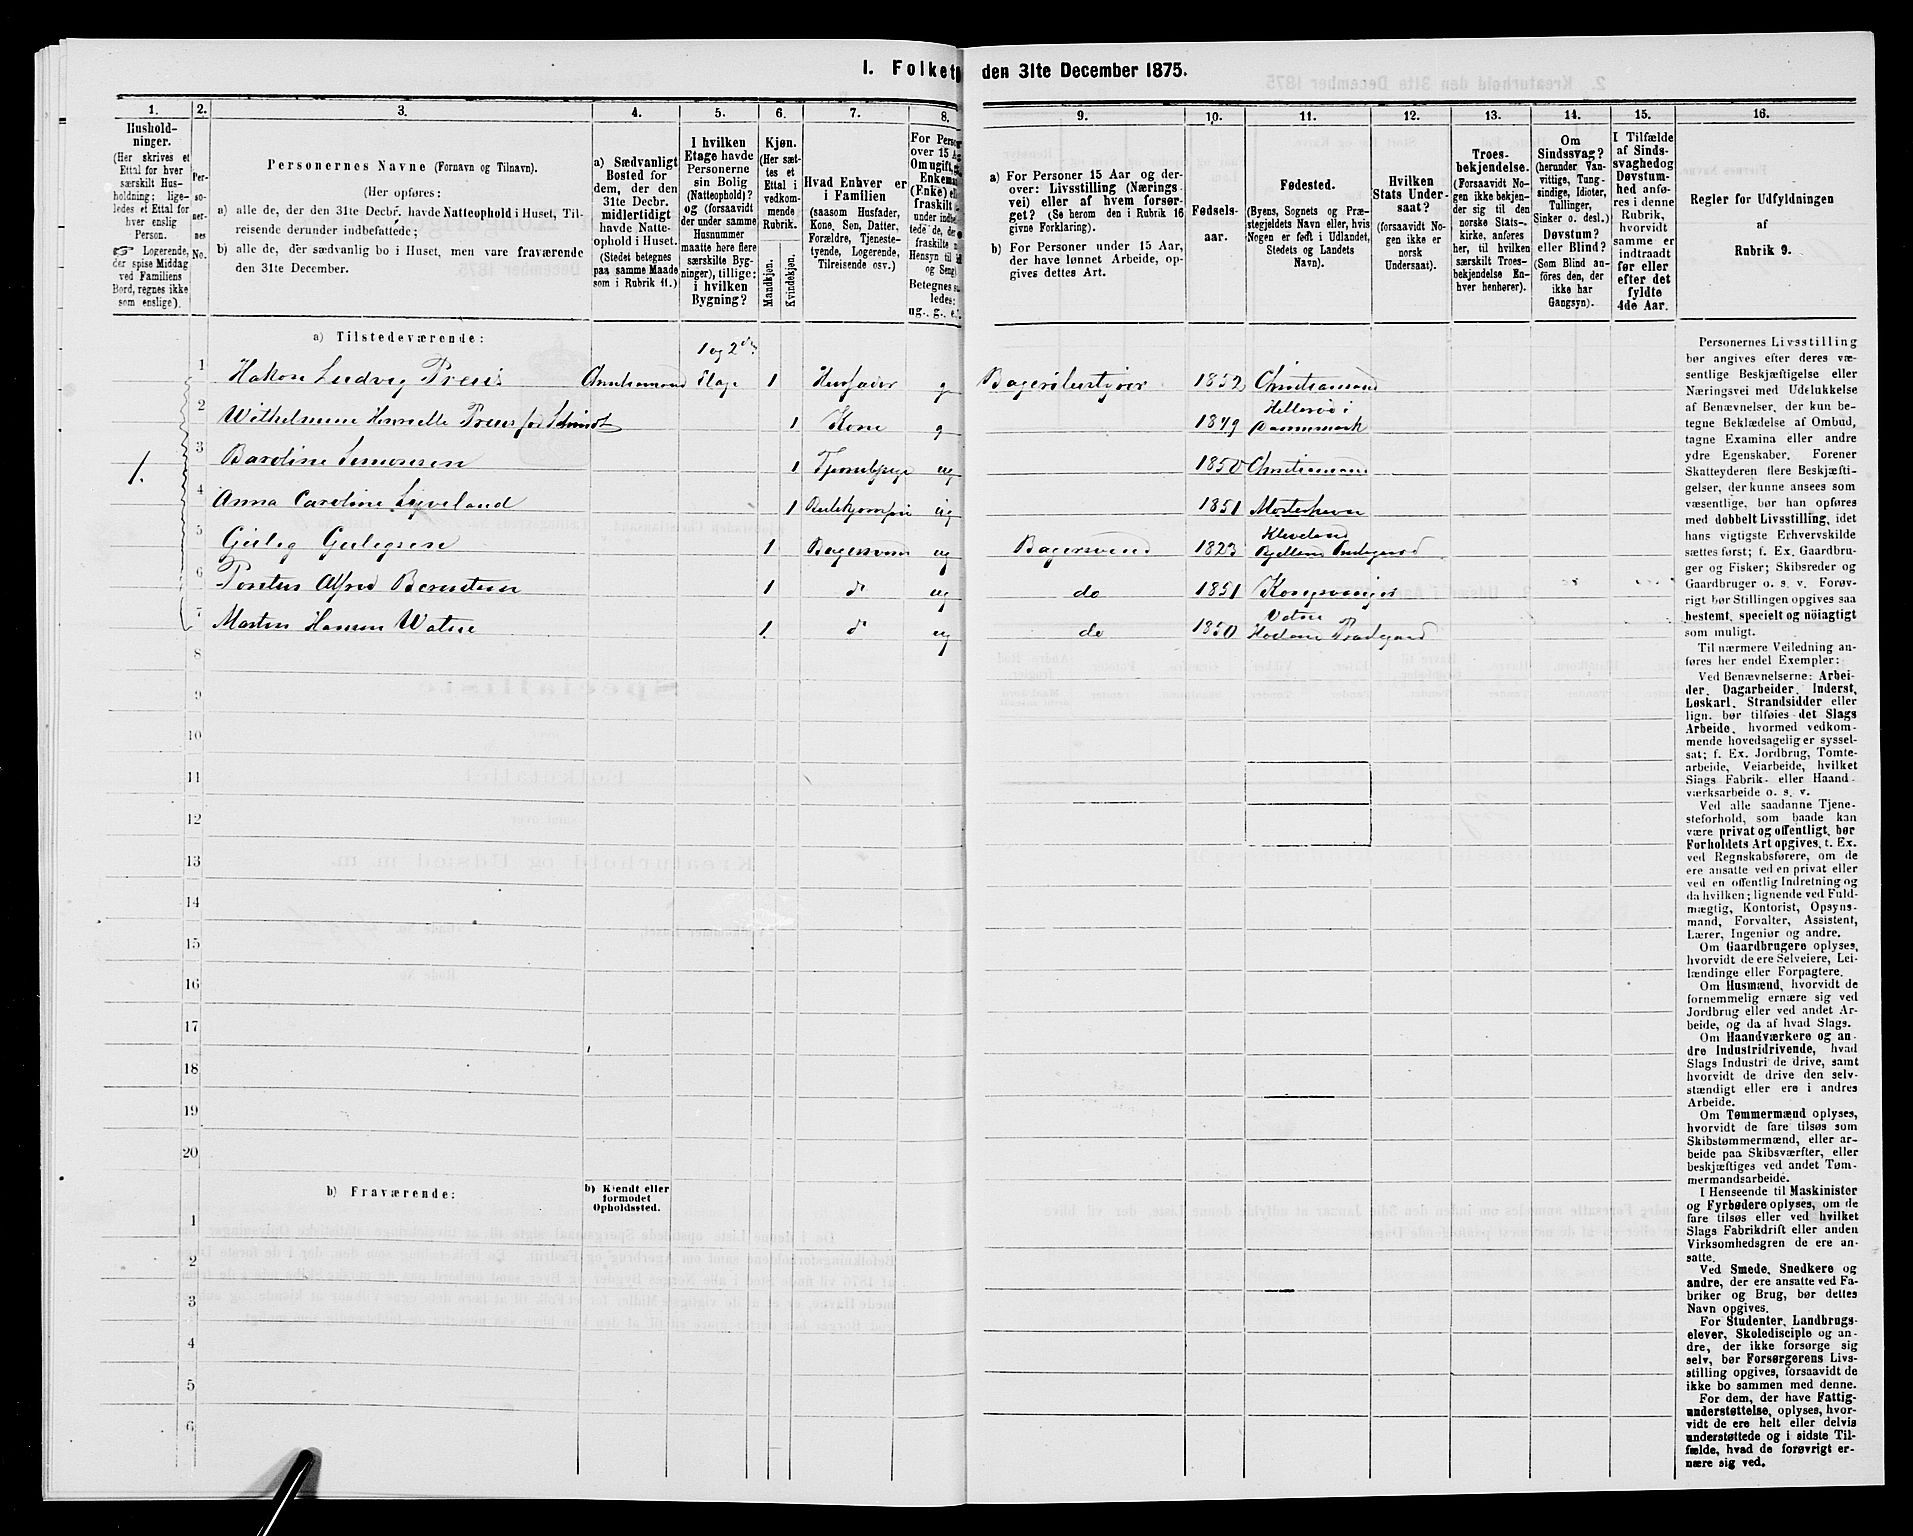 I. Folket
den 31te December 1875.
1.
Hushold-
ninger.
(Her skrives et
Ettal for hver
særskilt Hus-
holdning; lige-
ledes et Ettal for
hver enslig
Person.
☞ Logerende,
der spise Middag
ved Familiens
Bord, regnes ikke
som enslige).
2.
Per-
so-
ner-
nes
No.
3.
Personernes Navne (Fornavn og Tilnavn).
(Her opføres:
a) alle de, der den 31te Decbr. havde Natteophold i Huset, Til-
reisende derunder indbefattede;
b) alle de, der sædvanlig bo i Huset, men vare fraværende
den 31te December.
4.
a) Sædvanligt
Bosted for
dem, der den
31te Decbr.
midlertidigt
havde Natte-
ophold i Huset.
(Stedet betegnes
paa samme Maade
som i Rubrik 11.)
5.
I hvilken
Etage havde
Personerne
sin Bolig
(Natteophold)?
og (forsaavidt
der under samme
Husnummer
maatte høre flere
særskilte Byg-
ninger), tillige:
i hvilken
Bygning?
6.
Kjøn.
(Her sæt-
tes et
Ettal i
vedkom-
mende
Rubrik.
Mandkjøn.
Kvindekjøn.
7.
Hvad Enhver er
i Familien
(saasom Husfader,
Kone, Søn, Datter,
Forældre, Tjeneste-
tyende, Logerende,
Tilreisende osv.)
8.
For Perso
over 15 A
Om ugift,
Enkema
(Enke) el
fraskilt
9.
a) For Personer 15 Aar og der-
over: Livsstilling (Nærings-
vei) eller af hvem forsør-
get? (Se herom den i Rubrik 16
givne Forklaring).
b) For Personer under 15 Aar,
der have lønnet Arbeide, op-
gives dettes Art.
10.
Fødsels-
aar.
11.
Fødested.
(Byens, Sognets og Præ-
stegjeldets Navn eller, hvis
Nogen er født i Udlandet,
Stedets og Landets
Navn).
12.
Hvilken
Stats Under-
saat?
(forsaavidt No-
gen ikke er
norsk
Undersaat).
13.
Troes-
bekjendelse.
(Forsaavidt No-
gen ikke bekjen-
der sig til den
norske Stats-
kirke, anføres
her, til hvilken
særskilt Troes-
bekjendelse En-
hver henhører).
14.
Om
Sindssvag?
(herunder Van-
vittige, Tung-
sindige, Idioter,
Tullinger,
Sinker o. desl.)
Døvstum?
eller Blind?
(Som Blind an-
føres den, der
ikke har
Gangsyn).
15.
I Tilfælde
af Sinds-
svaghed og
Døvstum-
hed anfø-
res i denne
Rubrik,
hvorvidt
samme er
indtraadt
før eller
efter det
fyldte
4de Aar.
16.
Regler for Udfyldningen
af
Rubrik 9.
a) Tilstedeværende:
1 og 2den
1 Hakon Ludvig Preus Christiansand Etage 1 Husfader g Bagermester 1852 Christiansand
2 Wilhelmine Henriette Preus fød Schmidt 1 Kone g 1849 Hellerød i Dannemark
1.
3 Caroline Simonsen 1 Tjenestepige ug 1850 Christiansand
4 Anna Caroline 1 ug 1851
5 1 Bagersvend ug Bagersvend 1823
6 Pontus Alfred Berntsen 1 do ug do 1851 Kongsvinger
7 Martin Hansen Watne 1 do ug do 1850 Vatne
8
9
10
11
12
13
14
15
16
17
18
19
20
b) Fraværende:
b) Kjendt eller
formodet
Opholdssted.
1
2
3
4
5
6
Personernes Livsstilling
bør angives efter deres væ-
sentlige Beskjæftigelse eller
Næringsvei med Udelukkelse
af Benævnelser, der kun be-
tegne Beklædelse af Ombud,
tagne Examina eller andre
ydre Egenskaber. Forener
Skatteyderen flere Beskjæfti-
gelser, der kunne ansees som
væsentlige, bør han opføres
med dobbelt Livsstilling, idet
hans vigtigste Erhvervskilde
sættes først; f. Ex. Gaardbru-
ger og Fisker; Skibsreder og
Gaardbruger o. s. v. Forøv-
rigt bør Stillingen opgives saa
bestemt, specielt og nöiagtigt
som muligt.
Til nærmere Veiledning an-
føres her endel Exempler:
Ved Benævnelserne: Arbei-
der, Dagarbeider, Inderst,
Løskarl, Strandsidder eller
lign. bør tilføies det Slags
Arbeide, hvormed vedkom-
mende hovedsagelig er syssel-
sat; f. Ex. Jordbrug, Tomte-
arbeide, Veiarbeide, hvilket
Slags Fabrik- eller Haand-
værksarbeide o. s. v.
Ved alle saadanne Tjene-
steforhold, som baade kan
være privat og offentligt, bør
Forholdets Art opgives, t. Ex.
ved Regnskabsførere, om de
ere ansatte ved en privat eller
ved en offentlig Indretning og
da hvilken; lignende ved Fuld-
mægtig, Kontorist, Opsyns-
mand, Forvalter, Assistent,
Lærer, Ingeniør og andre.
Om Gaardbrugere oplyses,
hvorvidt de ere Selveiere, Lei-
lændinge eller Forpagtere.
Om Husmænd, hvorvidt de
fornemmelig ernære sig ved
Jordbrug eller ved andet Ar-
beide, og da af hvad Slags.
Om Haandværkere og an-
dre Industridrivende, hvad
Slags Industri de drive, samt
hvorvidt de drive den selv-
stændigt eller ere i andres
Arbeide.
Om Tømmermænd oplyses,
hvorvidt de fare tilsøs som
Skibstømmermænd, eller ar-
beide paa Skibsværfter, eller
beskjæftiges ved andet Tøm-
mermandsarbeide.
I Henseende til Maskinister
og Fyrbødere oplyses, om de
fare tilsøs eller ved hvilket
Slags Fabrikdrift eller anden
Virksomhedsgren de ere an-
satte.
Ved Smede, Snedkere og
andre, der ere ansatte ved Fa-
briker og Brug, bør dettes
Navn opgives.
For Studenter, Landbrugs-
elever, Skoledisciple og an-
dre, der ikke forsørge sig
selv, bør Forsørgerens Livs-
stilling opgives, forsaavidt de
ikke bo sammen med denne.
For dem, der have Fattig-
understøttelse, oplyses, hvor-
vidt de ere helt eller delvis
understøttede og i sidste Til-
fælde, hvad de forøvrigt er-
nære sig ved.